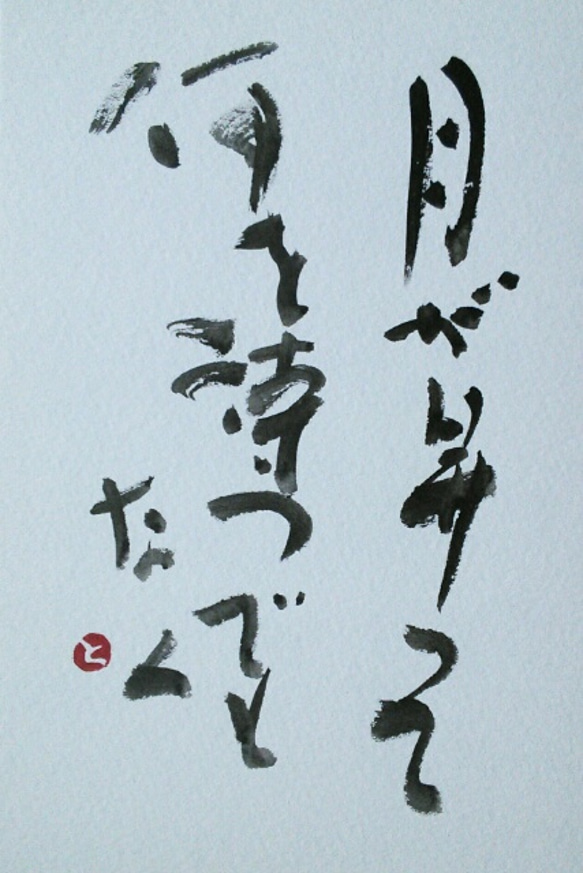 月が昇つて
何を待つでも
なく
と